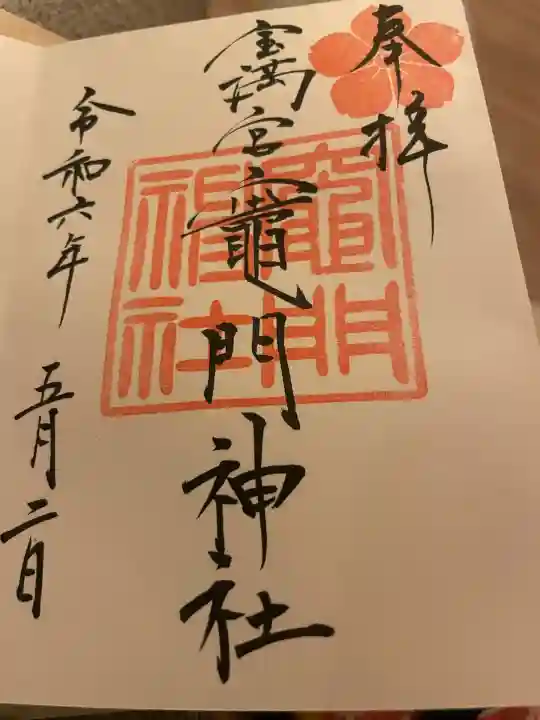 奉拝
宝満宮竈門神社
竈門神社
令和六年 五月二日